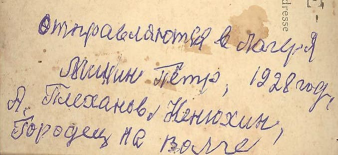 Отправляются в лагеря
Мишин Пётр, 1928 год,
А. Плеханов, Ненюхин,
Городец на Волге
dresse